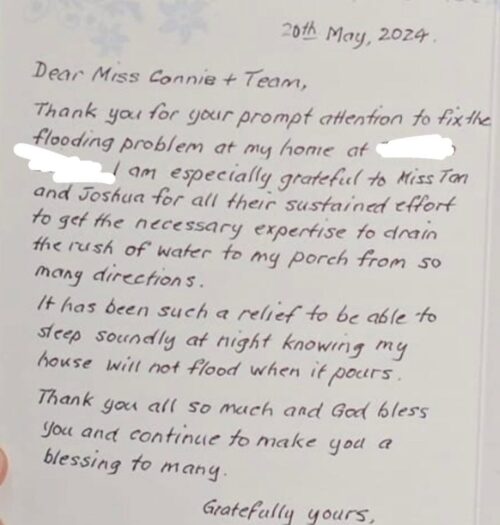 20th May, 2024.
Dear Miss Connie + Team,
Thank you for your prompt attention to fix the
flooding problem at my home at
I am especially grateful to Miss Tan
and Joshua for all their sustained effort
to get the necessary expertise to drain
the rush of water to my porch from so
many directions.
It has been such a relief to be able to
sleep soundly at night knowing my
house will not flood when it pours.
Thank you all so much and God bless
you and continue to make you a
blessing to many.
Gratefully yours,